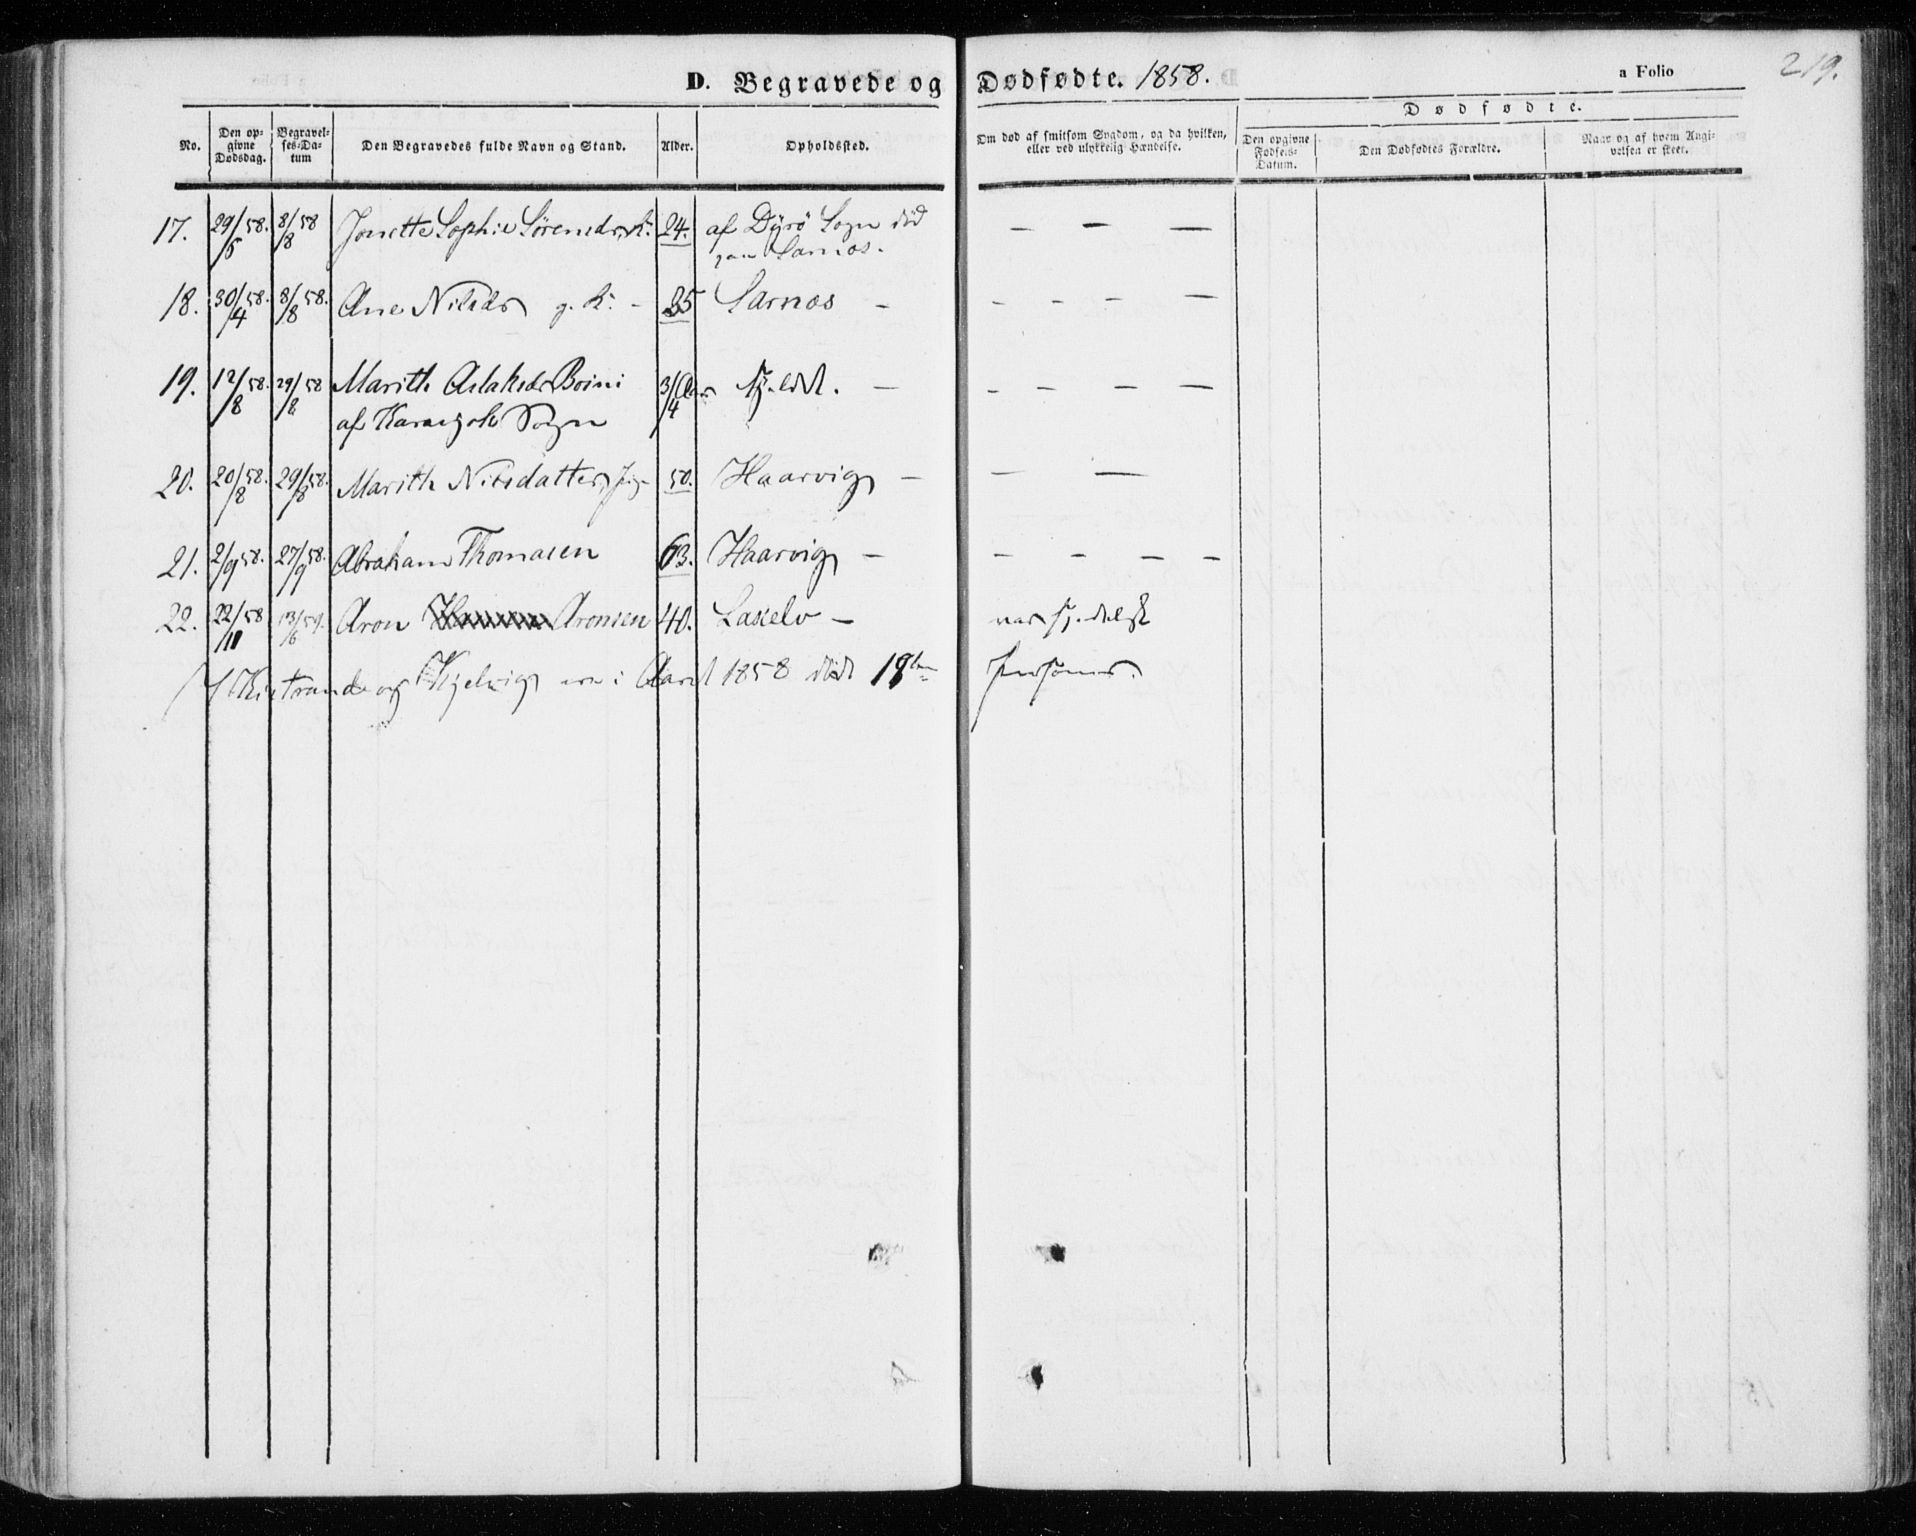 D. Begravede og Dødfødte. 1858.
a Folio 219.
No.
Den opgivne Dødsdag.
Begravelses-Datum
Den Begravedes fulde Navn og Stand.
Alder.
Opholdssted.
Om død af smitsom Sygdom, og da hvilken, eller ved ulykkelig Hændelse.
Dødfødte.
Den opgivne Fødsels-Datum.
Den Dødfødtes Forældre.
Naar og af hvem Angivelsen er skeet.
17. 29/6 58. 8/8 58 Jonette Sophie Sørensdr, K. 24. af Dyrø Sogn død
Sarnæs.
18. 30/4 58. 8/8 58. Ane Nilsdr g. K. - 25 Sarnæs - - - - -
19. 12/8 58. 29/8 58 Marith Aslaksdr Boini 3/4 Aar - - - - -
af Karasjok Sogn
20. 20/8 58. 29/8 58. Marith Nilsdatter, 50. Haarvig - - -
21. 2/9 58. 27/9 58. Abraham Thomasen 63. Haarvig - - - - -
22. 22/11 58 13/6 59. Aron Aronsen 40. Laxelv -
I Kistrand og Kjelvig ere i Aaret 1858 døde Personer.